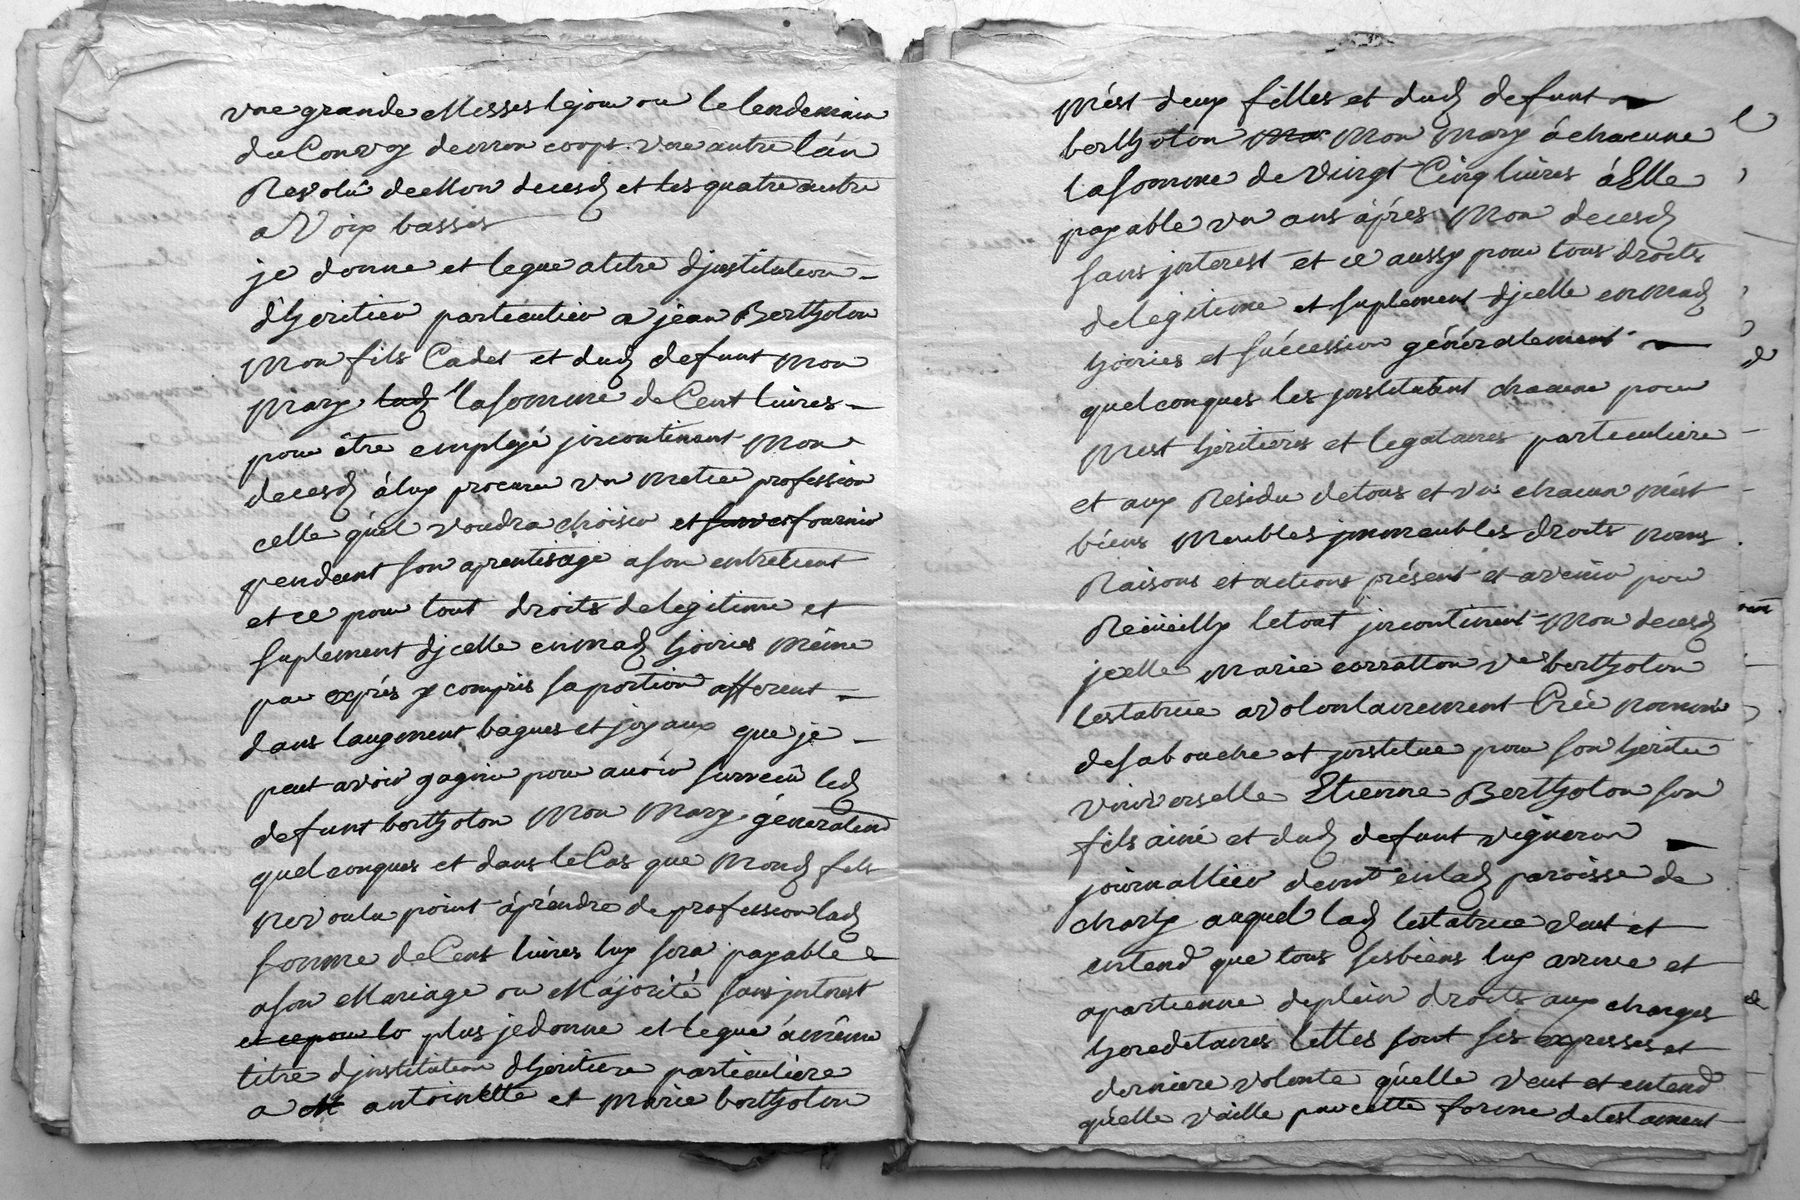 vne grande Messes lejour ou le lendemain
du Convoy de mon corps vne autre lán
Revolu de Mon decesd et les quatre autre
a Voix basses
je donne et legue a titre djnstitution
dheritier particulier a jean Bertholon
Mon fils Cadet et dud defunt Mon
Mary lad la somme de Cent livres
pour être emploÿé jncontinent Mon
decesd á luy procurer vn Metier profession
celle quel voudra choisir et fournir
pendent son aprentisage a son entretient
et ce pour tout droits de legitime et
suplement djcelle en mad hoiries Même
par exprés y compris sa portion afferent
dans laugment bagues et joyaux que je
peut avoir gagné pour avoir survecu led
defunt bertholon Mon Mary, generalem
quelconques et dans le Cas que Mond fils
ne voulu point ápréndre de profession lad
somme de Cent livres luy sera payable
a son Mariage ou Majorité sans jnterest
et ce pour lo plus je donne et legue á même
titre djnstitution dheritiere particuliere
a M antoinette et Marie bertholon
Mést deux filles et dud defunt
bertholon Mar Mon Mary á chacune
la somme de Vingt Cinq livres á Elle
payable vn ans áprés Mon decesd
sans jnterest et ce aussy pour tous droits
de legitime et suplement djcelle en mad
hoiries et succession généralement
quelconques les jnstituent chacune pour
Mest héritieres et legataires particuliere
et aux Residu de tous et vn chacun mést
biens Meubles jmmeubles droits noms
Raisons et actions présent et avenir pour
Reciieilly le tout jncontinent Mon decesd
jcelle Marie corratton Ve berthotlon
testatrice a volontairement Créé nommé
de sa bouche et jnstitue pour son heritie
vniverselle Etienne Bertholon son
fils ainé et dud defunt vigneron
journallier demt en lad paroisse de
charly auquel lad testatrice veut et
entend que tous ses biens luy arrive et
apartienne de plein droits aux charges
hereditaires telles sont ses expresses et
derniere volonte quélle veut et entend
quélle vaille par cette forme de testament